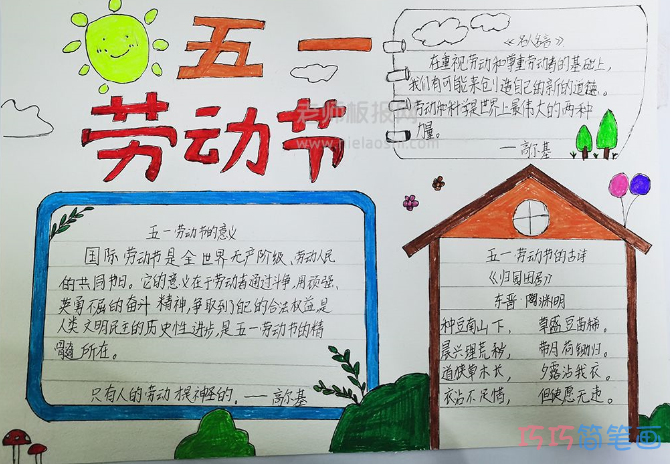 五一
劳动节
《名人名言》
在重视劳动和尊重劳动者的基础上,
我们有可能来创造自己的新的道德。
劳动和科学是世界上最伟大的两种
力量。
——高尔基
五一劳动节的意义
国际劳动节是全世界无产阶级、劳动人民
的共同节日。它的意义在于劳动者通过斗争,用顽强、
英勇不屈的奋斗精神,争取到了自己的合法权益,是
人类文明民主的历史性进步,是五一劳动节的精
髓所在。
只有人的劳动才是神圣的。——高尔基
五一劳动节的古诗
《归园田居》
东晋 陶渊明
种豆南山下, 草盛豆苗稀。
晨兴理荒秽, 带月荷锄归。
道狭草木长, 夕露沾我衣。
衣沾不足惜, 但使愿无违。
老师板报网
www.pielaoshi.com
巧巧简笔画